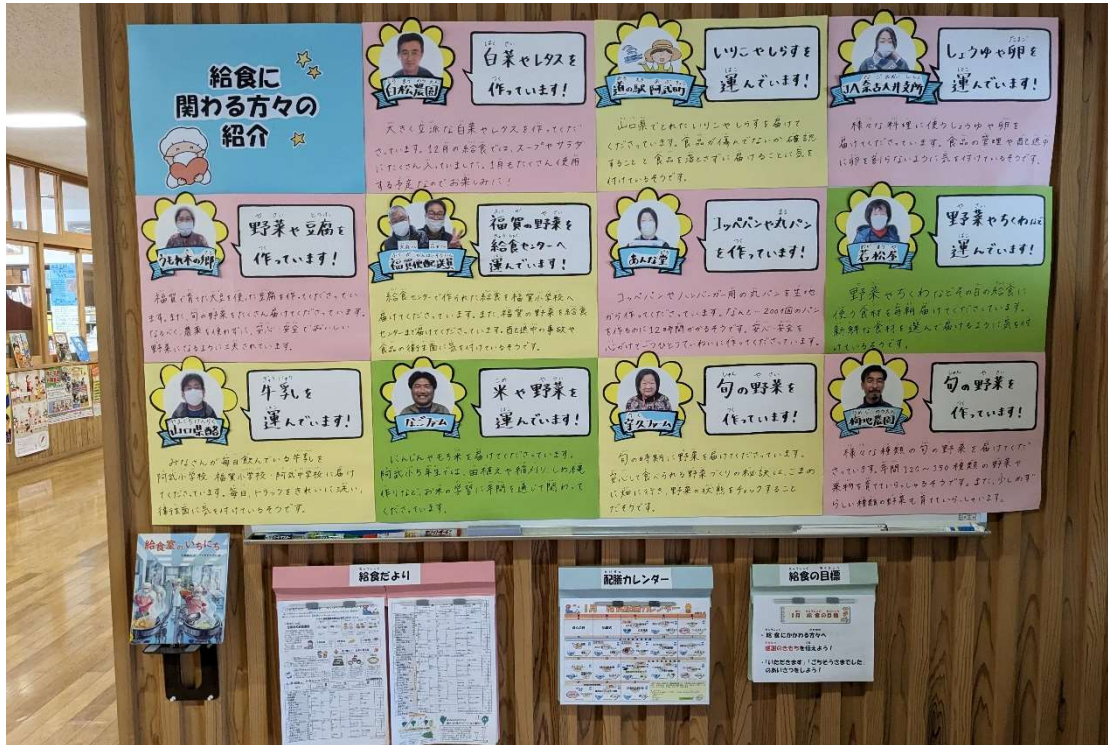 給食に
関わる方々の
紹介
白松農園
白菜やレタスを
作っています!
大きく立派な白菜やレタスを作ってくだ
さっています。12月の給食では、スープやサラダ
にたくさん入っていました。1月もたくさん使用
する予定なのでお楽しみに!
道の駅 阿武町
いりこやしらすを
運んでいます!
山口県でとれたいりこやしらすを届けて
くださっています。食品が傷んでないか確認
することと食品を落とさずに届けることに気を
付けているそうです。
しょうゆや卵を
運んでいます!
様々な料理に使うしょうゆや卵を
届けてくださっています。食品の管理や配送中
に卵を割らないように気を付けているそうです。
うもれ木の郷
野菜や豆腐を
作っています!
福賀で育てた大豆を使った豆腐を作ってくださってい
ます。また、旬の野菜をたくさん届けてくださっています。
なるべく、農薬を使わずに、安心・安全でおいしい
野菜になるように工夫されています。
福賀便配送員
福賀の野菜を
給食センターへ
運んでいます!
給食センターで作られた給食を福賀小学校へ
届けてくださっています。また、福賀の野菜を給食
センターまで届けてくださっています。配送中の事故や
食品の衛生面に気を付けているそうです。
あんな堂
コッペパンや丸パン
を作っています!
コッペパンやハンバーガー用の丸パンを生地
から作ってくださっています。なんと…200個のパン
を作るのに12時間かかるそうです。安心・安全を
心がけて一つひとつていねいに作ってくださっています。
石松屋
野菜やちくわなど
運んでいます!
野菜やちくわなどその日の給食に
使う食材を毎朝届けてくださっています。
新鮮な食材を選んで届けるように気を付
けているそうです。
山口県酪
牛乳を
運んでいます!
みなさんが毎日飲んでいる牛乳を
阿武小学校・福賀小学校・阿武中学校に届け
てくださっています。毎日、トラックをきれいに洗い、
衛生面に気を付けているそうです。
なごファーム
米や野菜を
運んでいます!
にんじんやもち米を届けてくださっています。
阿武小5年生では、田植えや稲刈り、しめ縄
作りなど、お米の学習に年間を通して関わって
くださっています。
旬の野菜を
作っています!
旬の時期に野菜を届けてくださっています。
安心して食べられる野菜づくりの秘訣は、こまめ
に畑に行き、野菜の状態をチェックすること
だそうです。
梅地農園
旬の野菜を
作っています!
様々な種類の旬の野菜を届けてくだ
さっています。年間120〜150種類の野菜や
果物を育てていらっしゃるそうです。また、少しめず
らしい種類の野菜も育てていらっしゃいます。
給食室のいちにち
給食だより
配膳カレンダー
1月 給食配膳カレンダー
給食の目標
1月 給食の目標
・給食にかかわる方々へ
感謝のきもちを伝えよう!
・「いただきます」「ごちそうさまでした」
のあいさつをしよう!